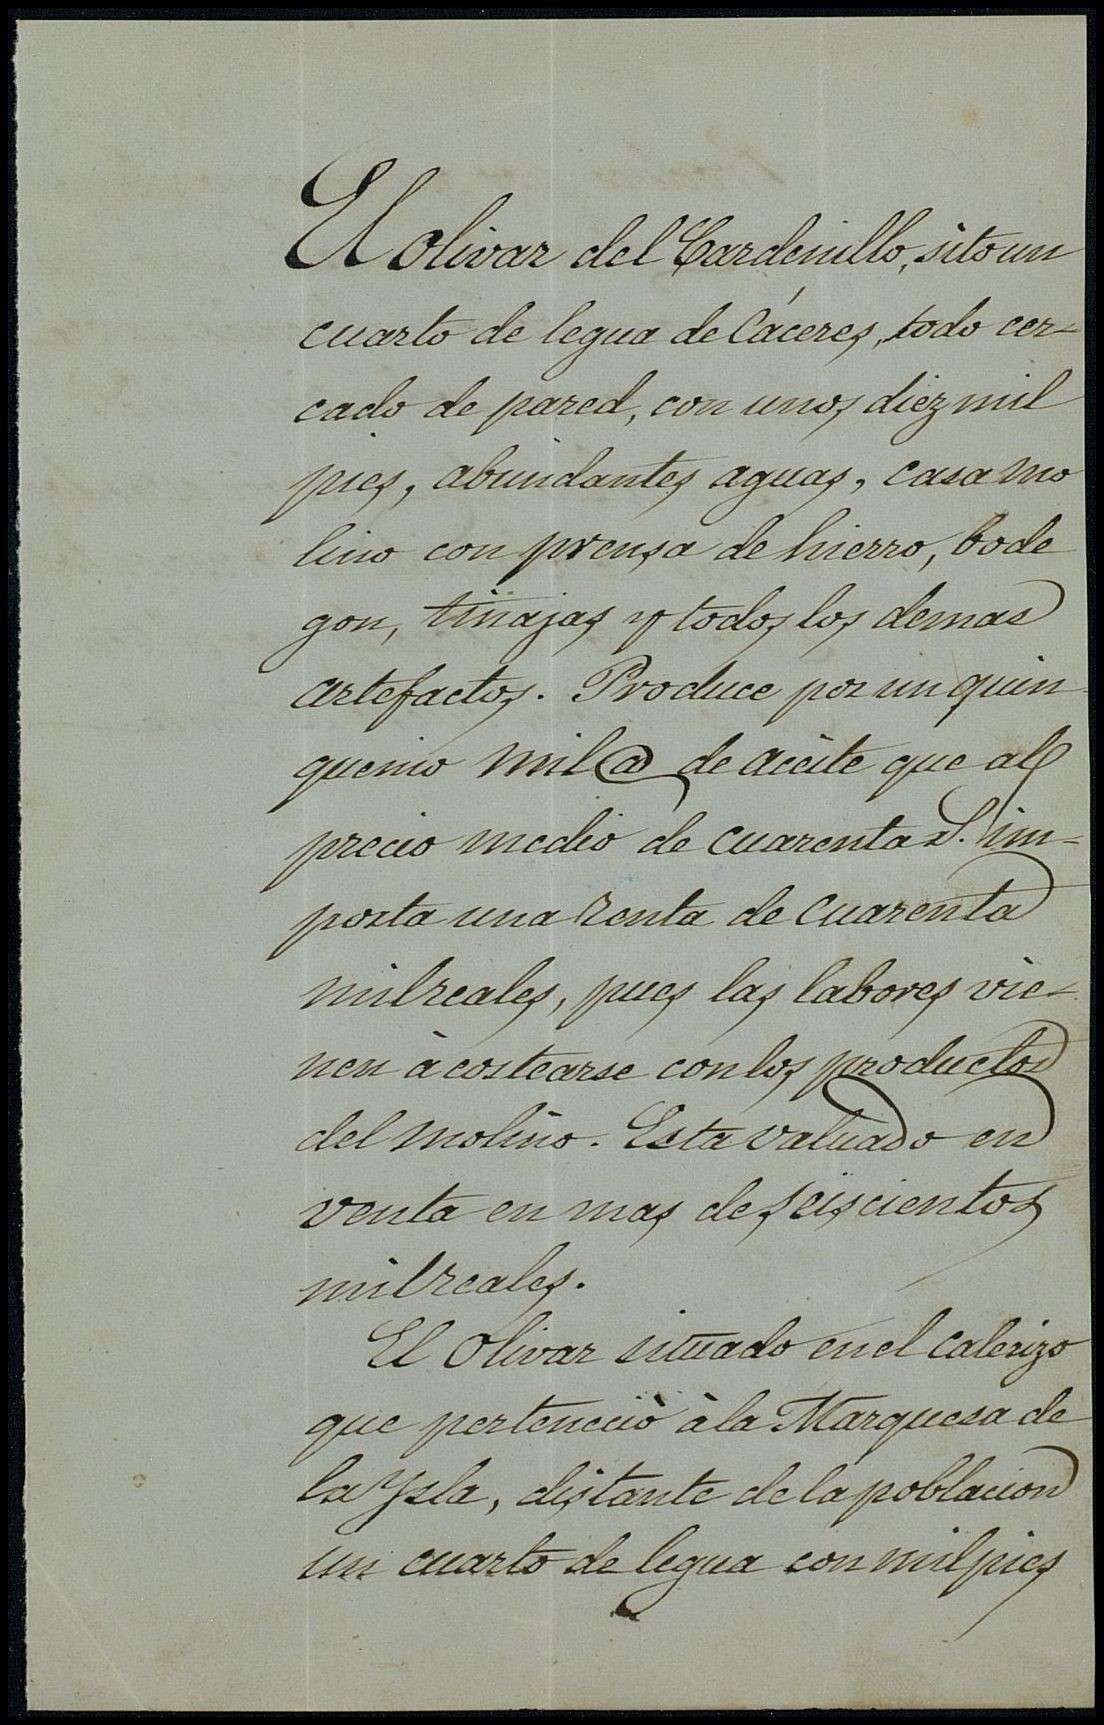 El olivar del Cardenillo, sito un
cuarto de legua de Cáceres, todo cer-
cado de pared, con unos diez mil
pies, abundantes aguas, casa mo
lino con prensa de hierro, bode
gon, tinajas y todos los demas
artefactos. Produce por un quin
quenio mil @ de aceite que al
precio medio de cuarenta rs. im-
porta una renta de cuarenta
mil reales, pues las labores vie-
nen à costearse con los productos
del molino. Esta valuado en
venta en mas de seiscientos
mil reales.
El Olivar situado en el calerizo
que perteneciò à la Marquesa de
la Ysla, distante de la poblacion
un cuarto de legua con mil pies